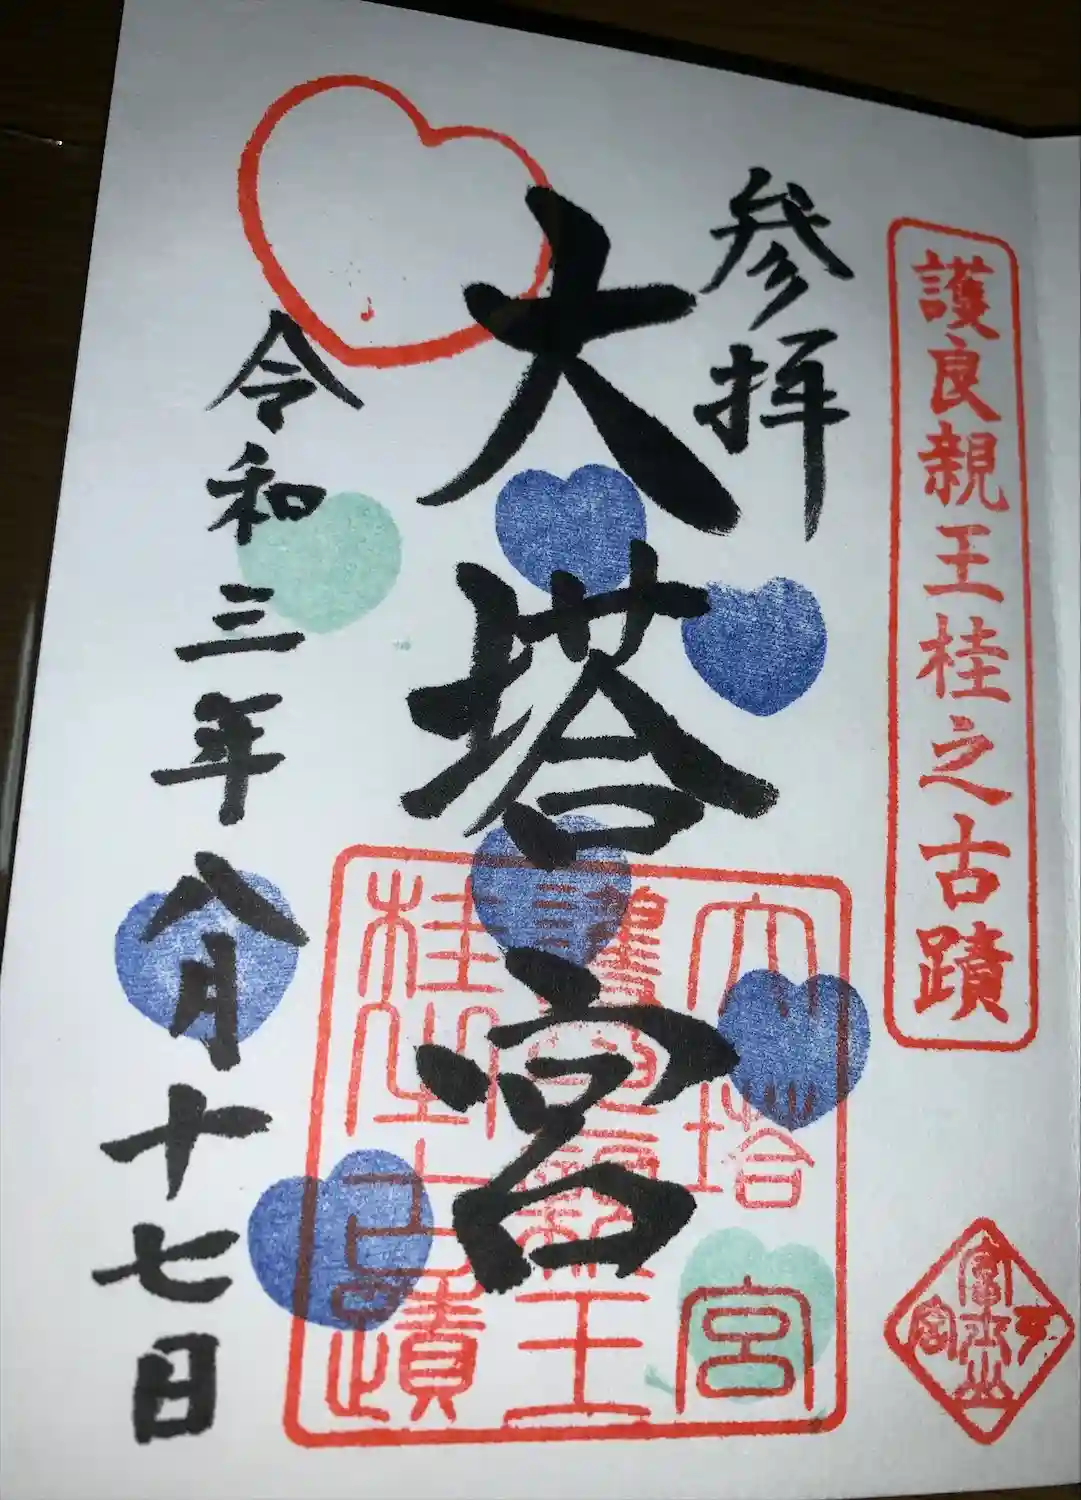 護良親王桂之古蹟
参拝
大塔宮
令和三年八月十七日
大塔宮
護良親王
桂之古蹟